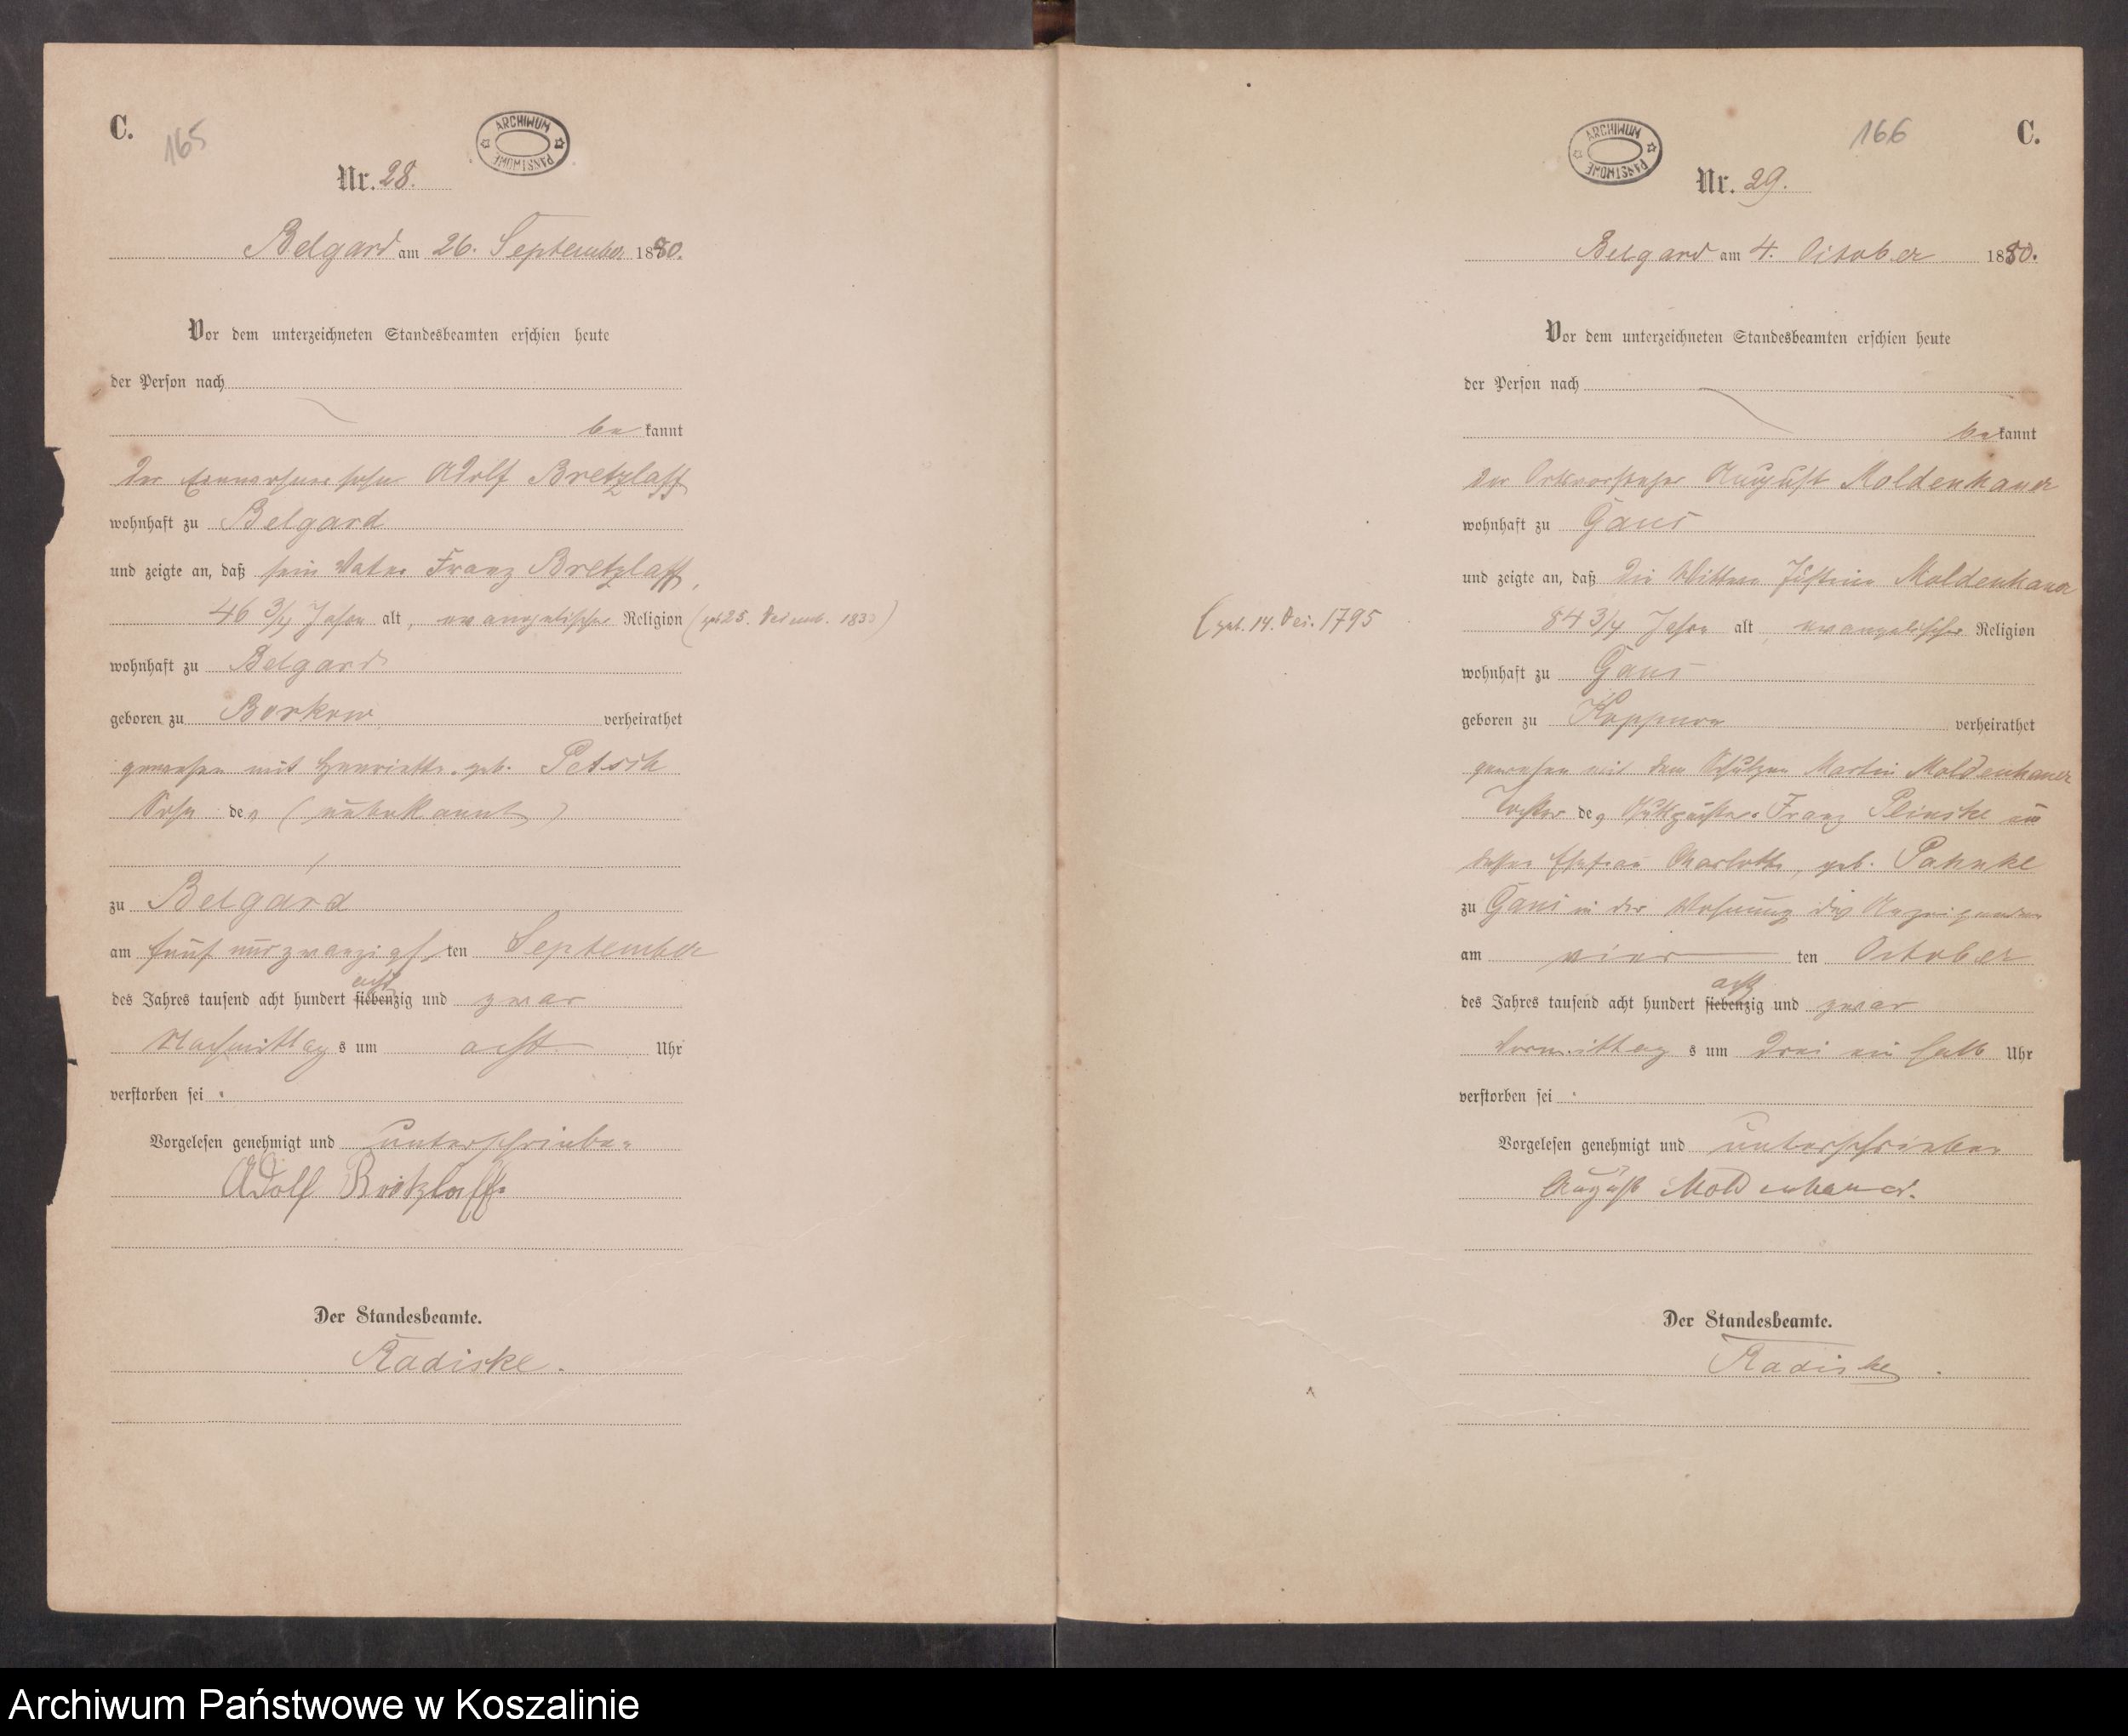 C.
165
ARCHIWUM PAŃSTWOWE
Nr. 28.
Belgard am 26. September 1880.
Vor dem unterzeichneten Standesbeamten erschien heute
der Person nach
be kannt
Der Einwohnersohn Adolf Bretzlaff
wohnhaft zu Belgard
und zeigte an, daß sein Vater Franz Bretzlaff,
46 3/4 Jahre alt, evangelischer Religion (geb. 25. Decemb. 1833)
wohnhaft zu Belgard
geboren zu Borkow, verheirathet
gewesen mit Henriette geb. Petsch
Sohn der (unbekannt)
zu Belgard
am fünf und zwanzigsten September
acht
des Jahres tausend acht hundert siebenzig und zwar
Nachmittags um acht Uhr
verstorben sei.
Vorgelesen genehmigt und unterschrieben
Adolf Bretzlaff.
Der Standesbeamte.
Radiske.
166
C.
ARCHIWUM PAŃSTWOWE
Nr. 29.
Belgard am 4. October 1880.
Vor dem unterzeichneten Standesbeamten erschien heute
der Person nach
be kannt
Der Ortsvorsteher August Moldenhauer
wohnhaft zu�
und zeigte an, daß die Wittwe Justine Moldenhauer
(geb. 14. Dec. 1795
84 3/4 Jahre alt, evangelischer Religion
wohnhaft zu
geboren zu verheirathet
gewesen mit dem Schulzen Martin Moldenhauer
Tochter des Franz
dessen Ehefrau Charlotte, geb. Pahnke
zu in der Wohnung des Anzeigenden
am vier ten October
acht
des Jahres tausend acht hundert siebenzig und zwar
Vormittags um drei ein halb Uhr
verstorben sei.
Vorgelesen genehmigt und unterschrieben
August Moldenhauer.
Der Standesbeamte.
Radiske.
Archiwum Państwowe w Koszalinie